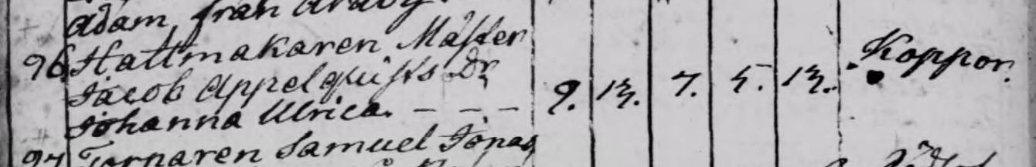 Adam, från Araby.
96 Hattmakaren Mäster
Jacob Appelquists Dr
Johanna Ulrica. - - - 9. 13. 7. 5. 13. Koppor.
97 Tornaren Samuel Jonas